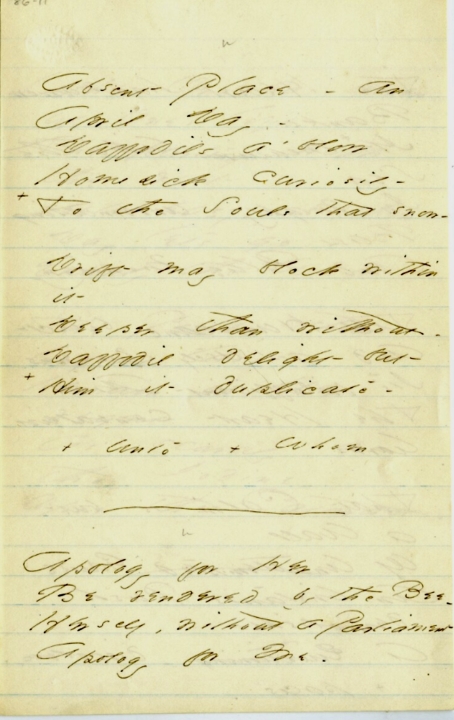 Absent Place - an
April Day -
Daffodils a'blow
Homesick curiosity -
+ To the Souls that snow -
Drift may block within
it
Deeper than without -
Daffodil delight but
+ Him it duplicate -
+ Unto + Whom
Apology for Her
Be rendered by the Bee -
Herself, without a Parliament
Apology for Me.